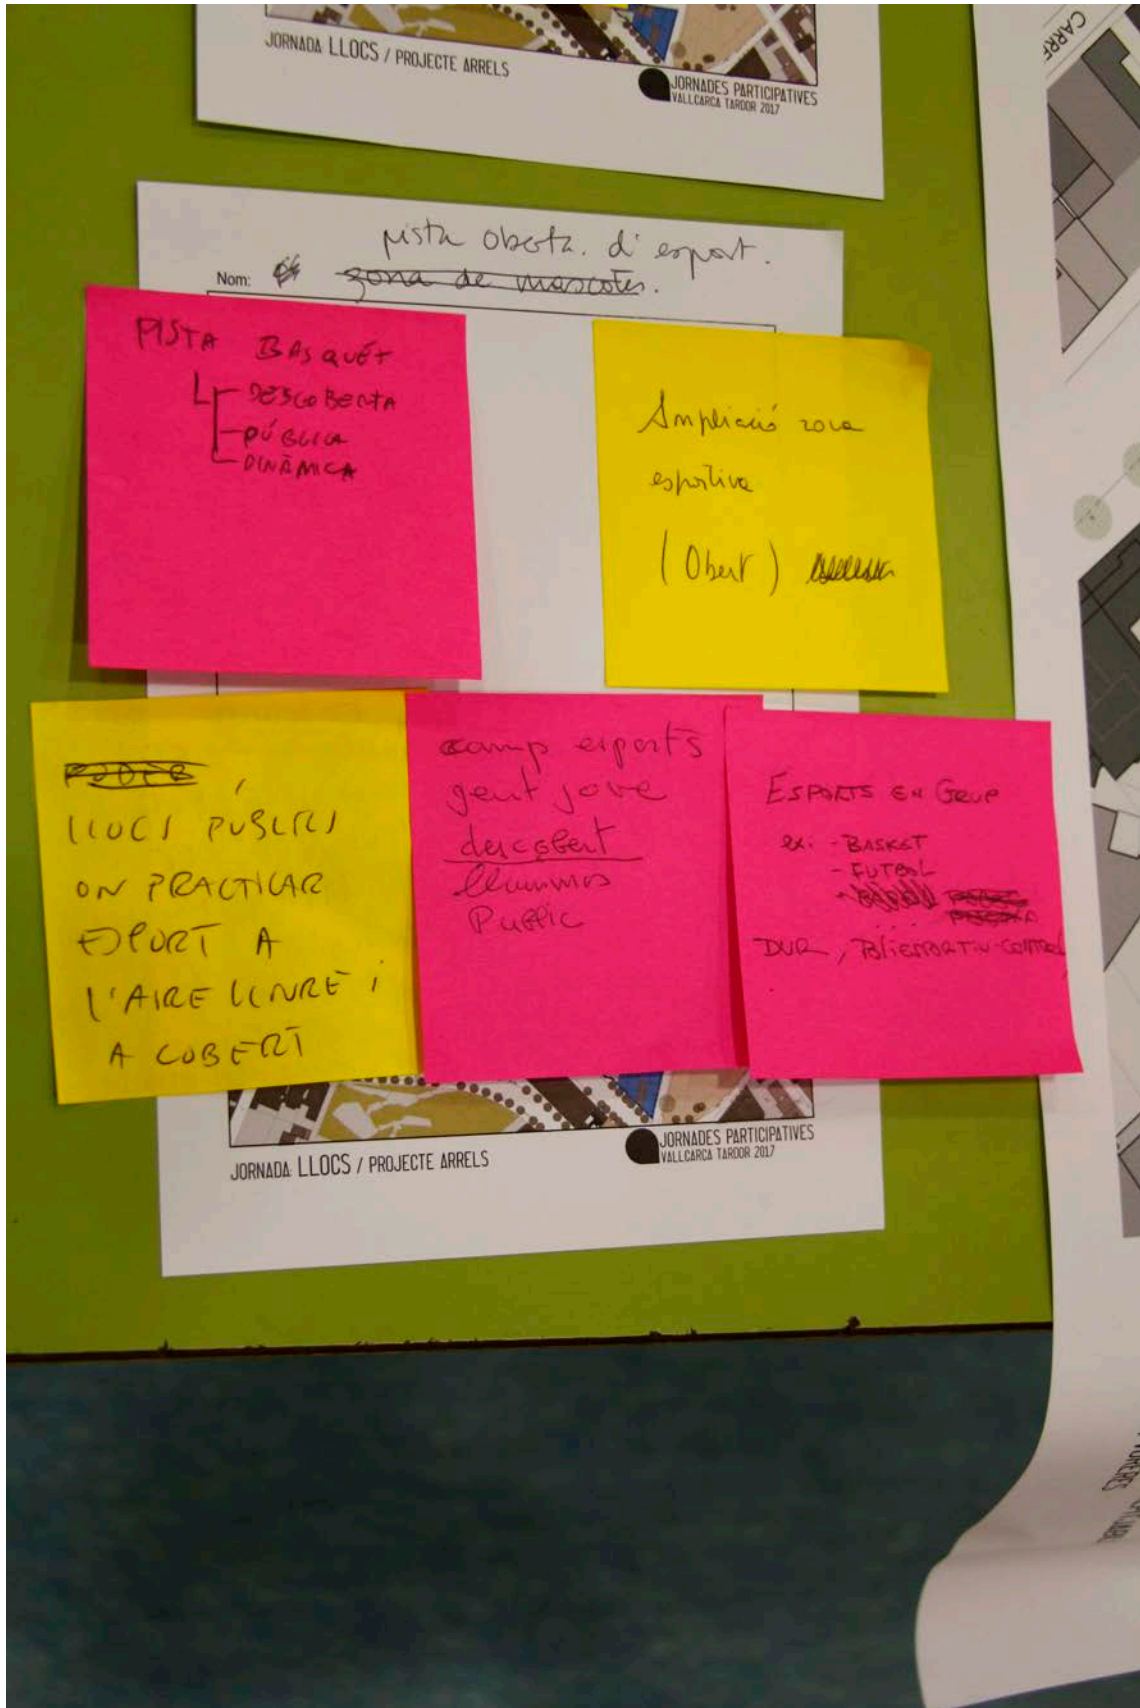 JORNADA LLOCS / PROJECTE ARRELS
JORNADES PARTICIPATIVES
VALLCARCA TARDOR 2017
CARRE
pista oberta. d'esport.
Nom: zona de mascotes.
PISTA BASQUÉT
DESCOBERTA
PÚBLICA
DINÀMICA
Ampliació zona
esportiva
(Obert)
PODER
LLOCS PÚBLICS
ON PRACTICAR
ESPORT A
L'AIRE LLIURE i
A COBERT
camp esports
gent jove
descobert
lluminos
Public
ESPORTS EN GRUP
ex: - BASKET
- FUTBOL
DUR, POLIESPORTIU-CONTROL
JORNADA: LLOCS / PROJECTE ARRELS
JORNADES PARTICIPATIVES
VALLCARCA TARDOR 2017